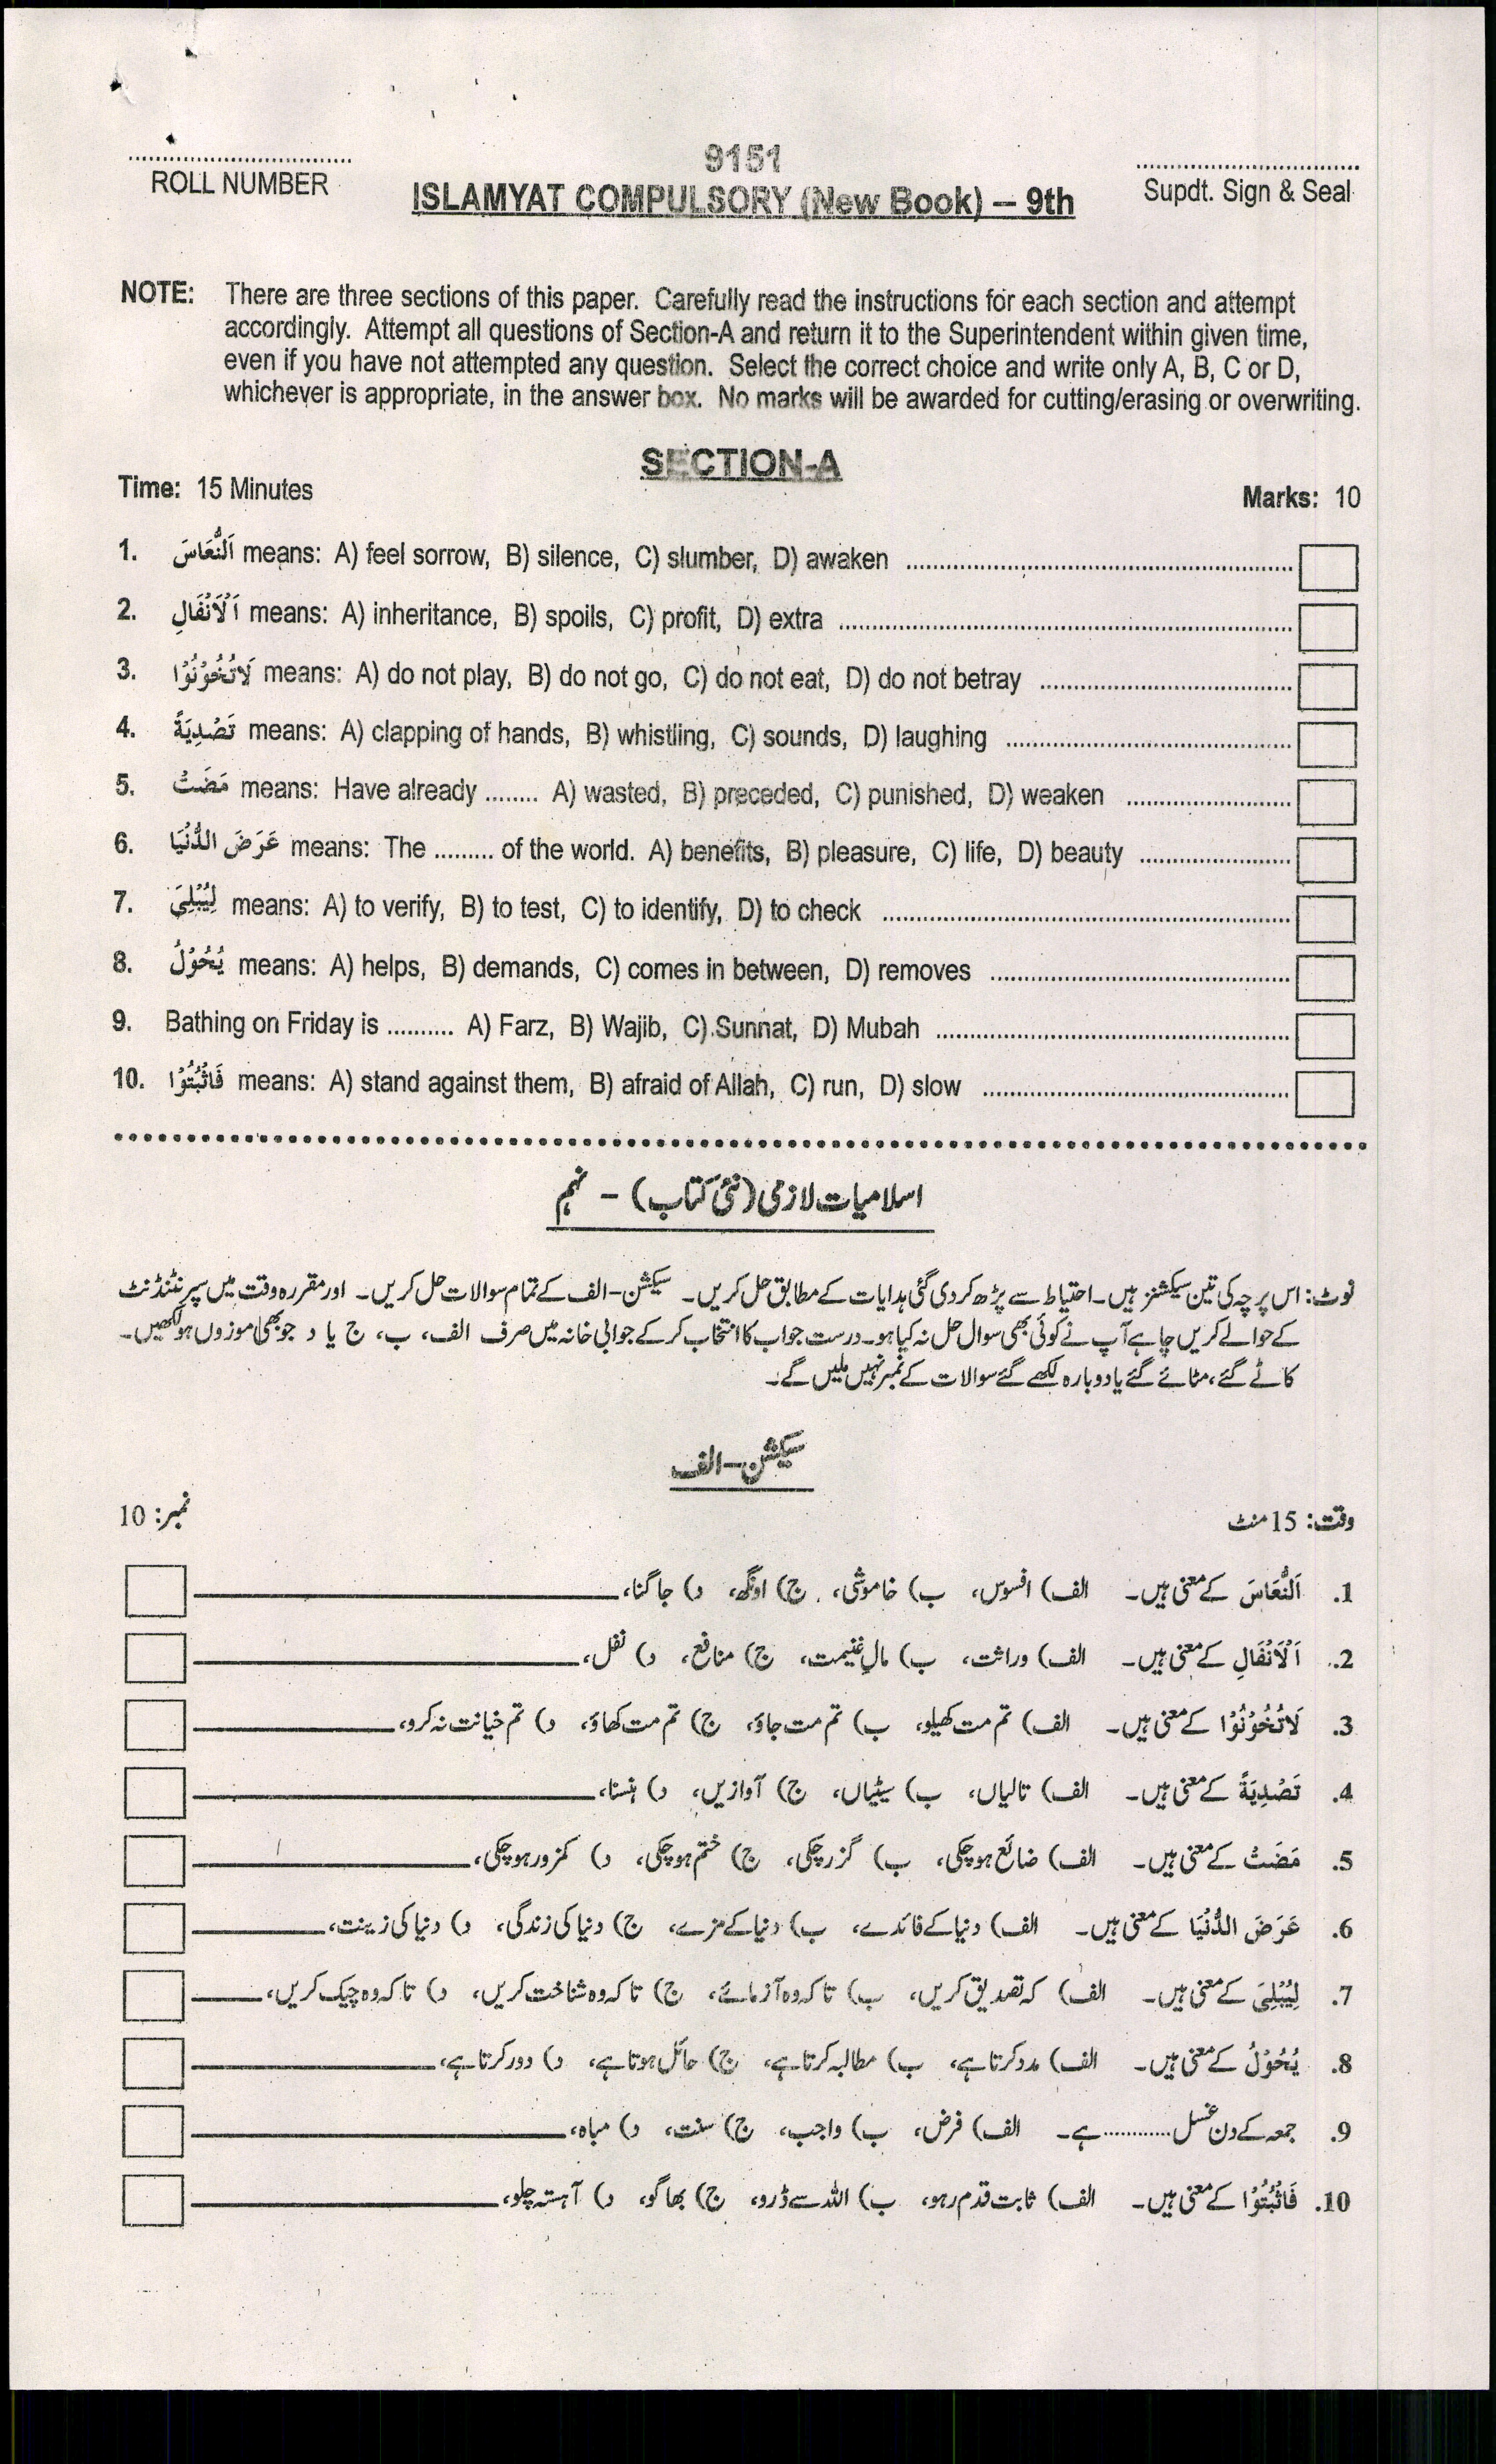 9151
ROLL NUMBER
ISLAMYAT COMPULSORY (New Book) – 9th
Supdt. Sign & Seal
NOTE: There are three sections of this paper. Carefully read the instructions for each section and attempt
accordingly. Attempt all questions of Section-A and return it to the Superintendent within given time,
even if you have not attempted any question. Select the correct choice and write only A, B, C or D,
whichever is appropriate, in the answer box. No marks will be awarded for cutting/erasing or overwriting.
SECTION-A
Time: 15 Minutes Marks: 10
1. اَلنُّعَاسَ means: A) feel sorrow, B) silence, C) slumber, D) awaken
2. اَلْاَنْفَالِ means: A) inheritance, B) spoils, C) profit, D) extra
3. لَاتُخُوْنُوْا means: A) do not play, B) do not go, C) do not eat, D) do not betray
4. تَصْدِيَةً means: A) clapping of hands, B) whistling, C) sounds, D) laughing
5. مَضَتْ means: Have already ........ A) wasted, B) preceded, C) punished, D) weaken
6. عَرَضَ الدُّنْيَا means: The ......... of the world. A) benefits, B) pleasure, C) life, D) beauty
7. لِيُبْلِيَ means: A) to verify, B) to test, C) to identify, D) to check
8. يُحُوْلُ means: A) helps, B) demands, C) comes in between, D) removes
9. Bathing on Friday is .......... A) Farz, B) Wajib, C) Sunnat, D) Mubah
10. فَاثْبُتُوْا means: A) stand against them, B) afraid of Allah, C) run, D) slow
اسلامیات لازمی (نئی کتاب) – نہم
نوٹ: اس پرچہ کی تین سیکشنز ہیں۔ احتیاط سے پڑھ کر دی گئی ہدایات کے مطابق حل کریں۔ سیکشن-الف کے تمام سوالات حل کریں۔ اور مقررہ وقت میں سپرنٹنڈنٹ
کے حوالے کریں چاہے آپ نے کوئی بھی سوال حل نہ کیا ہو۔ درست جواب کا انتخاب کر کے جوابی خانہ میں صرف الف، ب، ج یا د جو بھی موزوں ہو لکھیں۔
کاٹے گئے، مٹائے گئے یا دوبارہ لکھے گئے سوالات کے نمبر نہیں ملیں گے۔
سیکشن-الف
وقت: 15 منٹ نمبر: 10
1. اَلنُّعَاسَ کے معنی ہیں۔ الف) افسوس، ب) خاموشی، ج) اونگھ، د) جاگنا،
2. اَلْاَنْفَالِ کے معنی ہیں۔ الف) وراثت، ب) مالِ غنیمت، ج) منافع، د) نفل،
3. لَاتُخُوْنُوْا کے معنی ہیں۔ الف) تم مت کھیلو، ب) تم مت جاؤ، ج) تم مت کھاؤ، د) تم خیانت نہ کرو،
4. تَصْدِيَةً کے معنی ہیں۔ الف) تالیاں، ب) سیٹیاں، ج) آوازیں، د) ہنسنا،
5. مَضَتْ کے معنی ہیں۔ الف) ضائع ہوچکی، ب) گزرچکی، ج) ختم ہوچکی، د) کمزور ہوچکی،
6. عَرَضَ الدُّنْيَا کے معنی ہیں۔ الف) دنیا کے فائدے، ب) دنیا کے مزے، ج) دنیا کی زندگی، د) دنیا کی زینت،
7. لِيُبْلِيَ کے معنی ہیں۔ الف) کہ تصدیق کریں، ب) تاکہ وہ آزمائے، ج) تاکہ وہ شناخت کریں، د) تاکہ وہ چیک کریں،
8. يُحُوْلُ کے معنی ہیں۔ الف) مدد کرتا ہے، ب) مطالبہ کرتا ہے، ج) حائل ہوتا ہے، د) دور کرتا ہے،
9. جمعہ کے دن غسل ........... ہے۔ الف) فرض، ب) واجب، ج) سنت، د) مباہ،
10. فَاثْبُتُوْا کے معنی ہیں۔ الف) ثابت قدم رہو، ب) اللہ سے ڈرو، ج) بھاگو، د) آہستہ چلو،